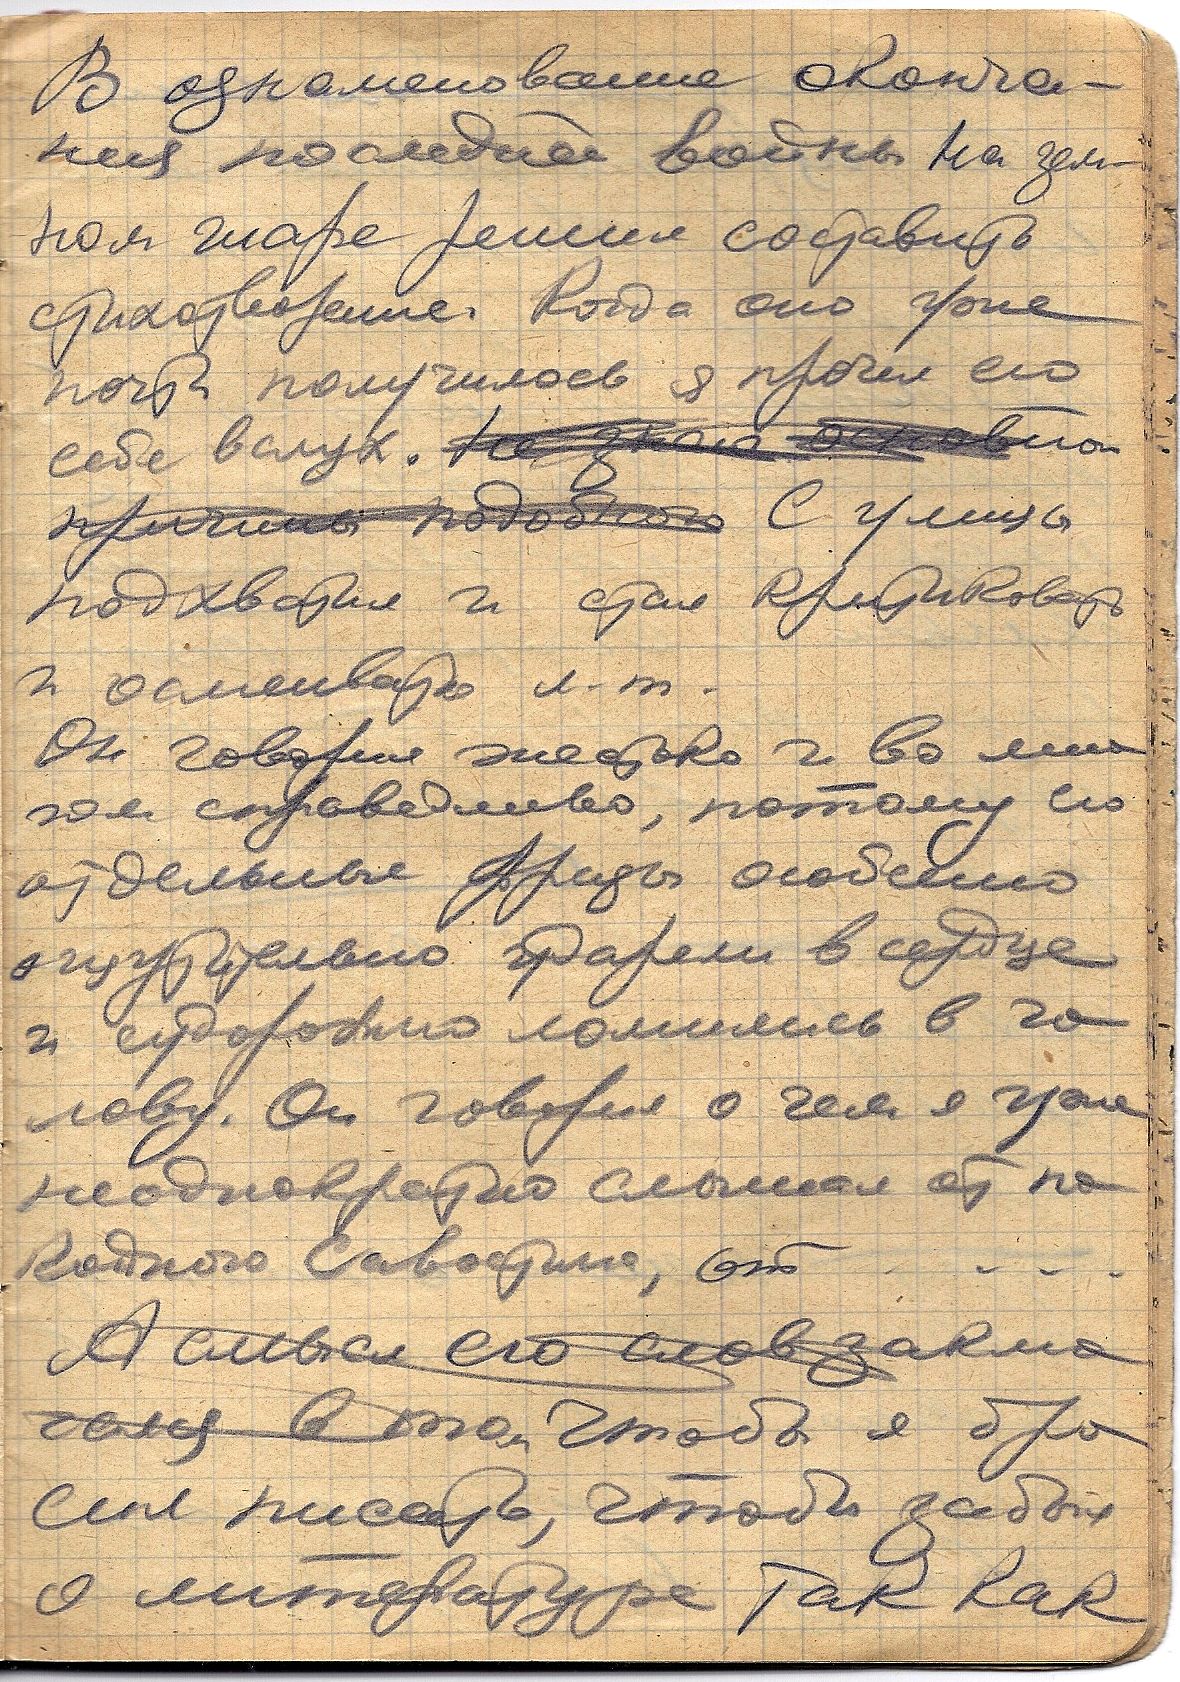 В ознаменование оконча-
ния последней войны на зем-
ном шаре решил составить
стихотворение. Когда оно уже
почти получилось я прочел его
себе вслух. Не знаю основной
причины подобного С улицы
подхватил и стал критиковать
и осмеивать л. т.
Он говорил жестоко и во мно
гом справедливо, потому его
отдельные фразы особенно
ощутительно ударяли в сердце
и судорожно ломились в го
лову. Он говорил о чем я уже
неоднократно слышал от по
койного Савостина, от - - - -
А смысл его слов заклю
чался в том, чтобы я бро
сил писать, чтобы забыл
о литературе так как